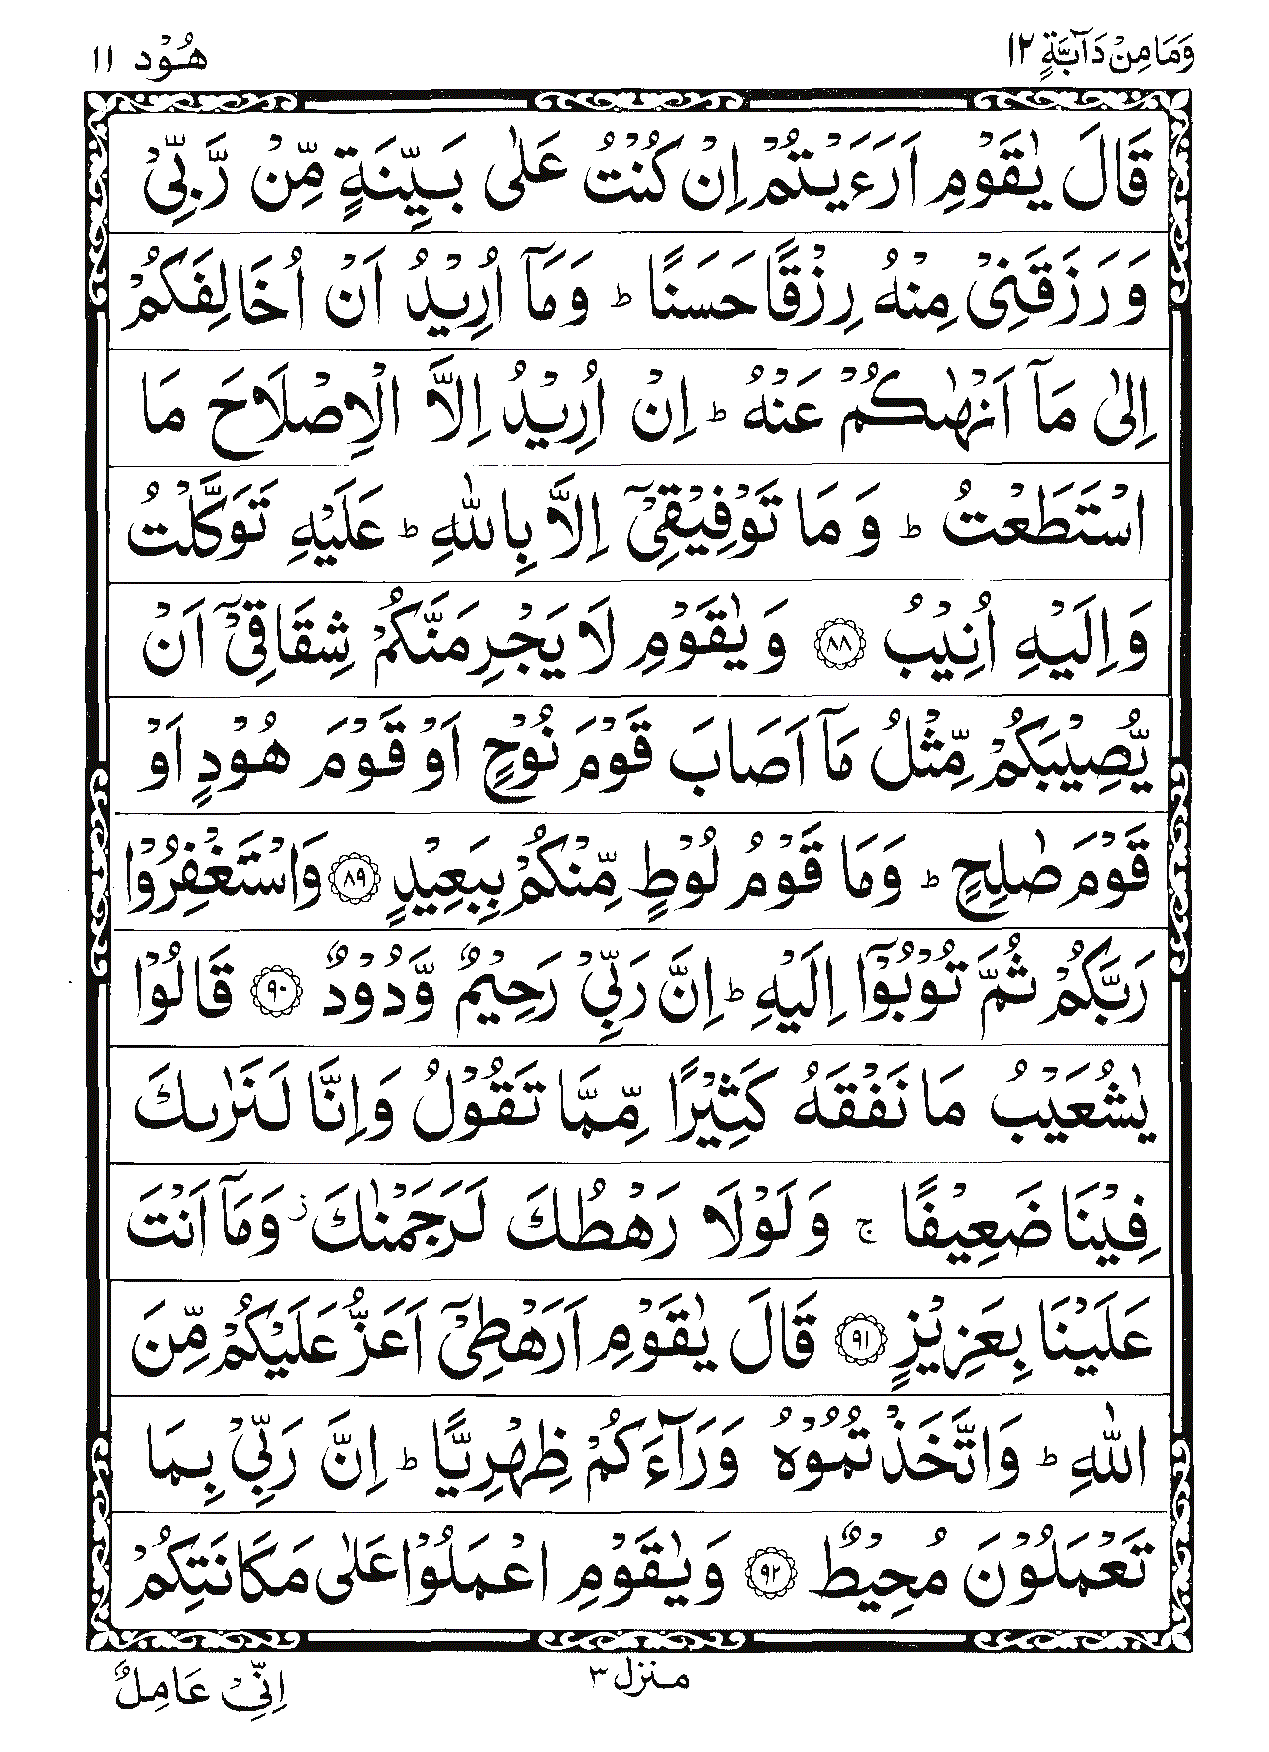 وَمَا مِنْ دَآبَّةٍ ١٢
هُوْد ١١
قَالَ يٰقَوْمِ اَرَءَيْتُمْ اِنْ كُنْتُ عَلٰى بَيِّنَةٍ مِّنْ رَّبِّىْ
وَرَزَقَنِىْ مِنْهُ رِزْقًا حَسَنًا ؕ وَمَاۤ اُرِيْدُ اَنْ اُخَالِفَكُمْ
اِلٰى مَاۤ اَنْهٰٮكُمْ عَنْهُ ؕ اِنْ اُرِيْدُ اِلَّا الْاِصْلَاحَ مَا
اسْتَطَعْتُ ؕ وَ مَا تَوْفِيْقِىْۤ اِلَّا بِاللّٰهِ ؕ عَلَيْهِ تَوَكَّلْتُ
وَاِلَيْهِ اُنِيْبُ ﴿٨٨﴾ وَيٰقَوْمِ لَا يَجْرِمَنَّكُمْ شِقَاقِىْۤ اَنْ
يُّصِيْبَكُمْ مِّثْلُ مَاۤ اَصَابَ قَوْمَ نُوْحٍ اَوْ قَوْمَ هُوْدٍ اَوْ
قَوْمَ صٰلِحٍ ؕ وَمَا قَوْمُ لُوْطٍ مِّنْكُمْ بِبَعِيْدٍ ﴿٨٩﴾ وَاسْتَغْفِرُوْا
رَبَّكُمْ ثُمَّ تُوْبُوْۤا اِلَيْهِ ؕ اِنَّ رَبِّىْ رَحِيْمٌ وَّدُوْدٌ ﴿٩٠﴾ قَالُوْا
يٰشُعَيْبُ مَا نَفْقَهُ كَثِيْرًا مِّمَّا تَقُوْلُ وَاِنَّا لَنَرٰٮكَ
فِيْنَا ضَعِيْفًا ۚ وَلَوْلَا رَهْطُكَ لَرَجَمْنٰكَ ز وَمَاۤ اَنْتَ
عَلَيْنَا بِعَزِيْزٍ ﴿٩١﴾ قَالَ يٰقَوْمِ اَرَهْطِىْۤ اَعَزُّ عَلَيْكُمْ مِّنَ
اللّٰهِ ؕ وَاتَّخَذْتُمُوْهُ وَرَآءَكُمْ ظِهْرِيًّا ؕ اِنَّ رَبِّىْ بِمَا
تَعْمَلُوْنَ مُحِيْطٌ ﴿٩٢﴾ وَيٰقَوْمِ اعْمَلُوْا عَلٰى مَكَانَتِكُمْ
منزل ٣
اِنِّىْ عَامِلٌ